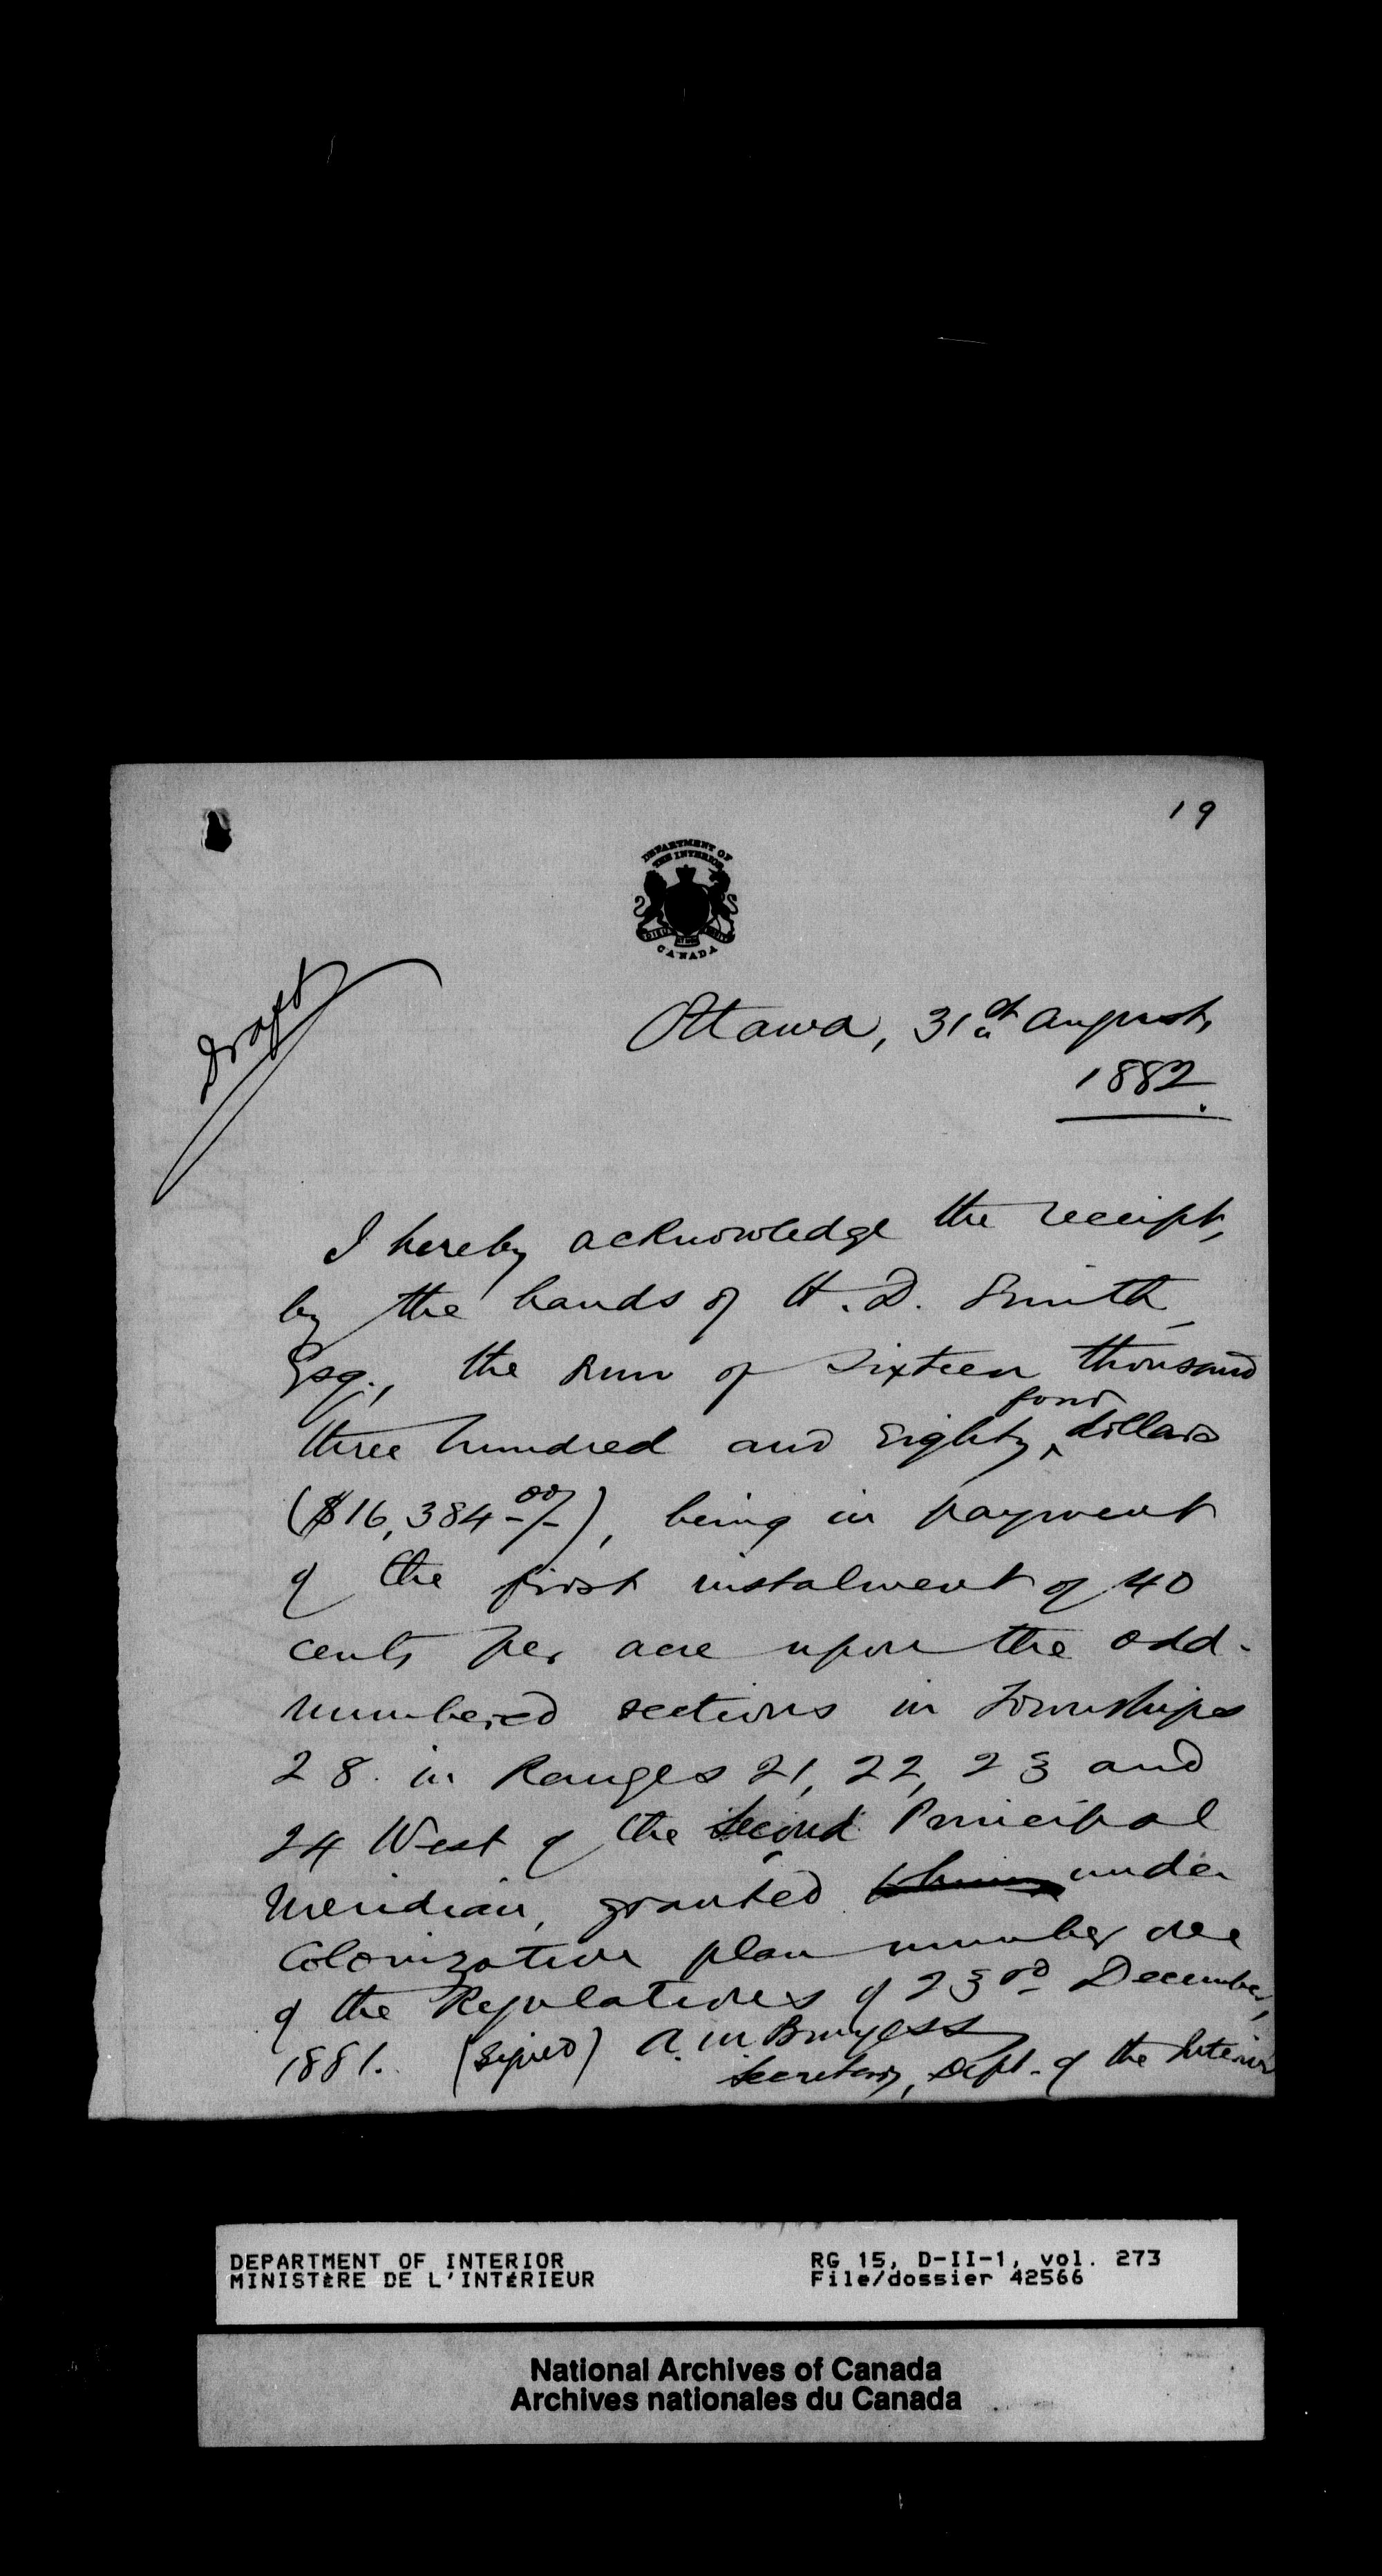 19
DEPARTMENT OF
THE INTERIOR
CANADA
Draft
Ottawa, 31st August,
1882.
I hereby acknowledge the receipt,
by the hands of H. D. Smith,
Esq., the sum of Sixteen thousand
four
three hundred and Eighty ^ dollars
($16,384 00/-), being in payment
of the first instalment of 40
cents per acre upon the odd-
numbered sections in Townships
28. in Ranges 21, 22, 23 and
24 West of the Second Principal
Meridian, granted under
Colonization plan number one
of the Regulations of 23rd December,
1881. (Signed) A. M. Burgess
Secretary, Dept. of the Interior
DEPARTMENT OF INTERIOR RG 15, D-II-1, vol. 273
MINISTÈRE DE L'INTÉRIEUR File/dossier 42566
National Archives of Canada
Archives nationales du Canada